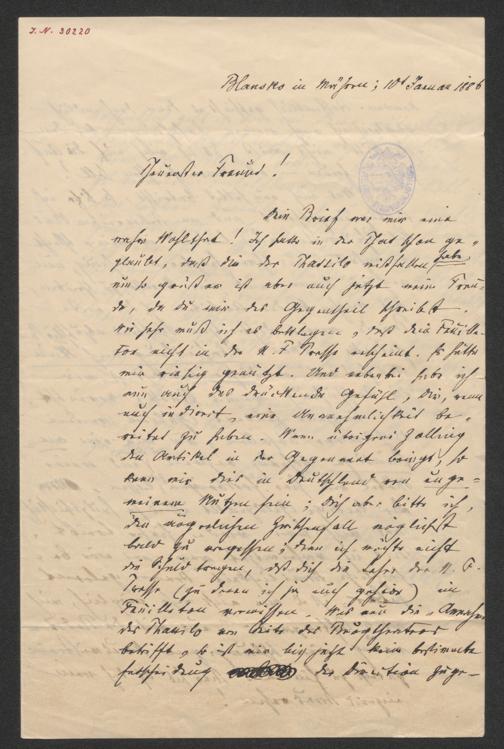 J. N. 30220
Blansko in Mähren; 10t Januar 1886
Theuerster Freund!
Dein Brief war mir eine
wahre Wohlthat! Ich hatte in der That schon ge-
glaubt, daß dir der Thassilo mißfallen habe
um so größer ist aber auch jetzt meine Freu-
de, da du mir das Gegentheil schreibst.
Wie sehr muß ich es beklagen, daß dein Feuille-
ton nicht in der N. F. Presse erscheint. Es hätte
mir riesig genützt. Und nebenbei habe ich
nun auch das drückende Gefühl, dir, wenn
auch indirect, eine Unannehmlichkeit be-
reitet zu haben. Wenn übrigens Zolling
den Artikel in der Gegenwart bringt, so
kann mir dies in Deutschland von unge-
meinem Nutzen sein; dich aber bitte ich,
den ärgerlichen Zwischenfall möglichst
bald zu vergessen; denn ich möchte nicht
die Schuld tragen, daß dich die Leser der N. F.
Presse (zu denen ich ja auch gehöre) im
Feuilleton vermissen. Was nun die Annahme
des Thassilo von Seite des Burgtheaters
betrifft, so ist mir bis jetzt keine bestimmte
Entscheidung der Direction zuge-